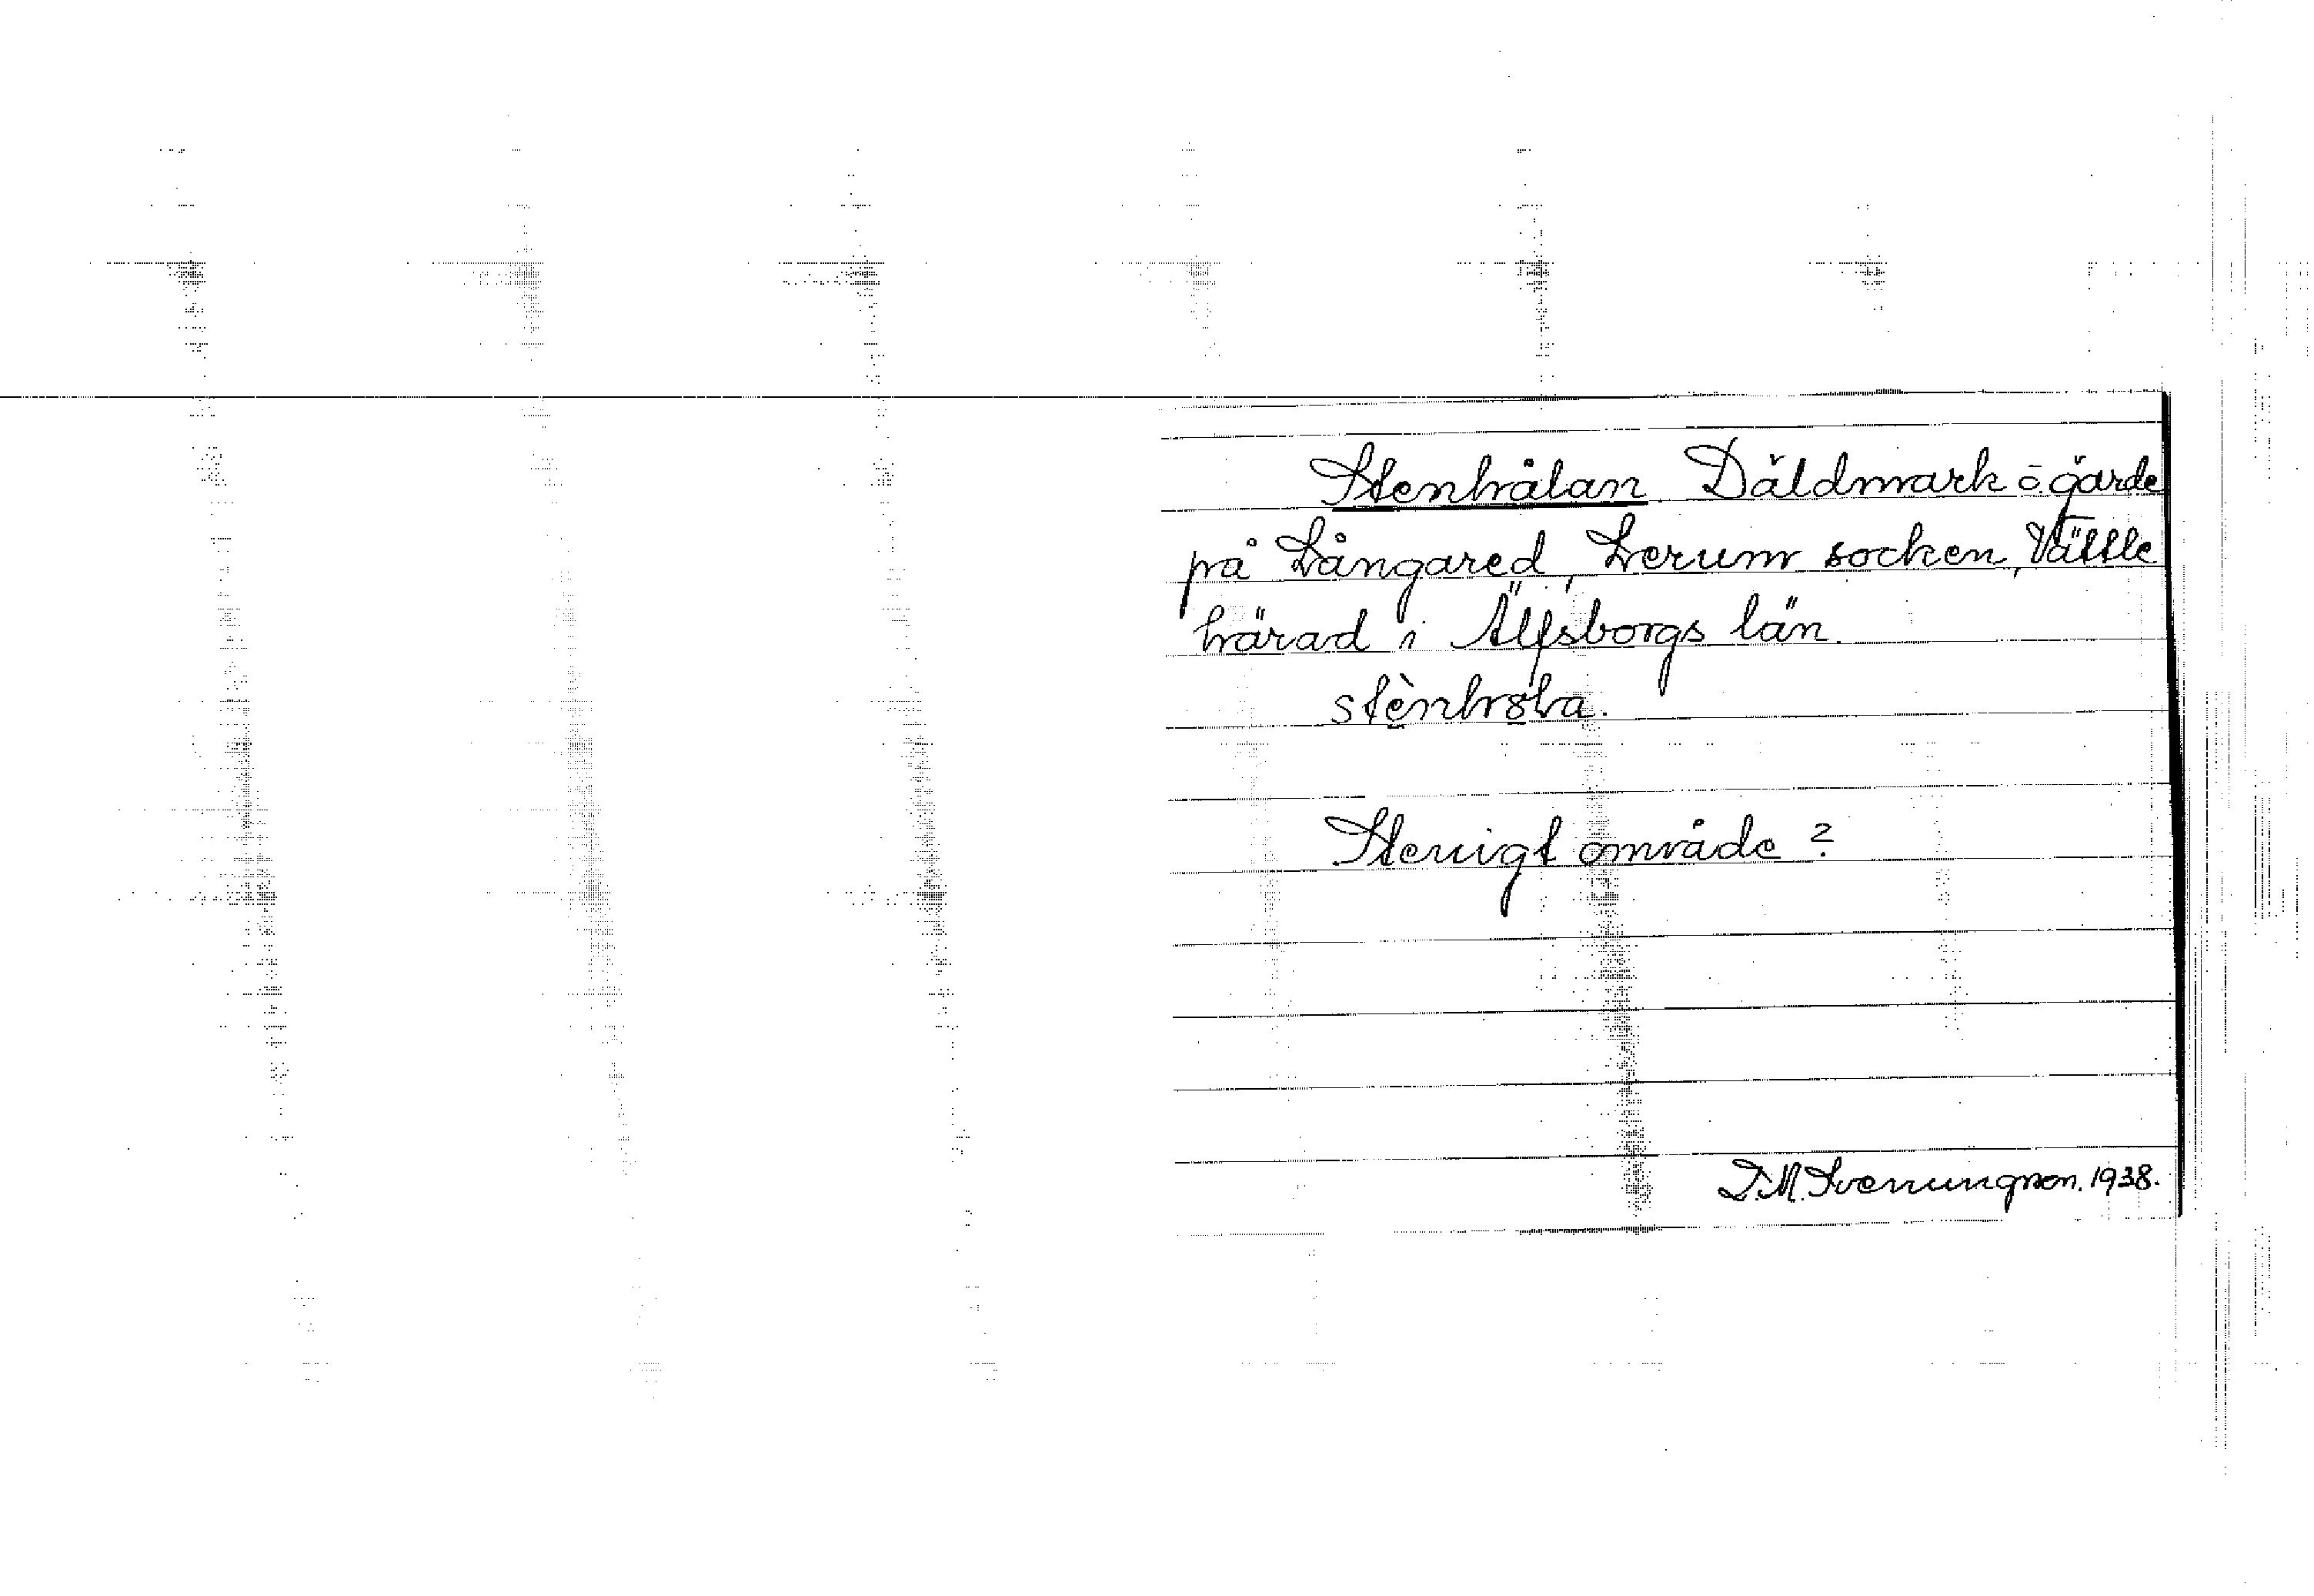 Stenhålan. Däldmark o. gärde
på Långared, Lerums socken, Vättle
härad i Älfsborgs län.
Stenigt område?
T.M. Svenungson. 1938.